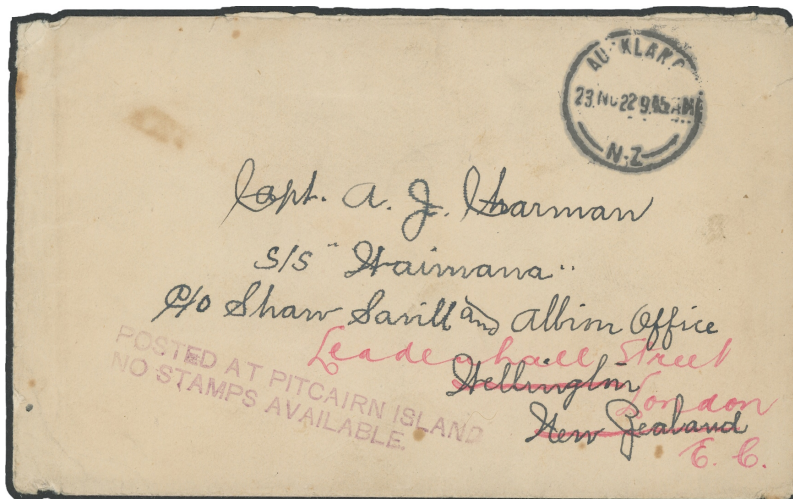 AUCKLAND
23.NO 22 9.45AM
N.Z
Capt. A. J. Charman
S/S "Waimana"
c/o Shaw Savill and Albion Office
Leadenhall Street
Wellington
London
New Zealand
E. C.
POSTED AT PITCAIRN ISLAND
NO STAMPS AVAILABLE.